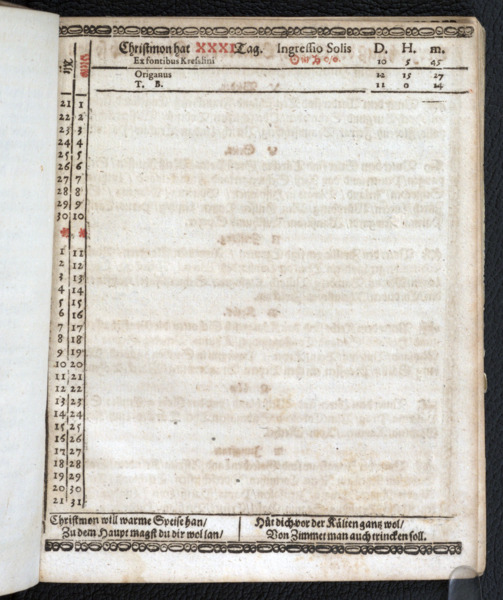 Christmon hat XXXI Tag. Ingressio Solis D. H. m.
Ex fontibus Kreselini 10 5 45
Origanus 12 15 27
T. B. 11 0 24
21 1
22 2
23 3
24 4
25 5
26 6
27 7
28 8
29 9
30 10
1 11
2 12
3 13
4 14
5 15
6 16
7 17
8 18
9 19
10 20
11 21
12 22
13 23
14 24
15 25
16 26
17 27
18 28
19 29
20 30
21 31
Christmon will warme Speise han/
Zu dem Haupt magst du dir wol lan/
Hüt dich vor der Kälten gantz wol/
Von Zimmet man auch trincken soll.